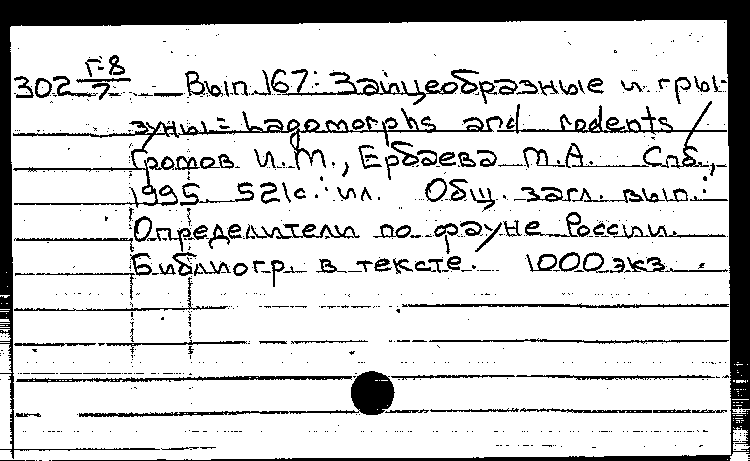 302 Г-8/7 Вып. 167: Зайцеобразные и гры-
зуны = Lagomorphs and rodents /
Громов И.М., Ербаева М.А. Спб.,
1995. 521с.: ил. Общ. загл. вып.:
Определители по фауне России.
Библиогр. в тексте. 1000 экз.